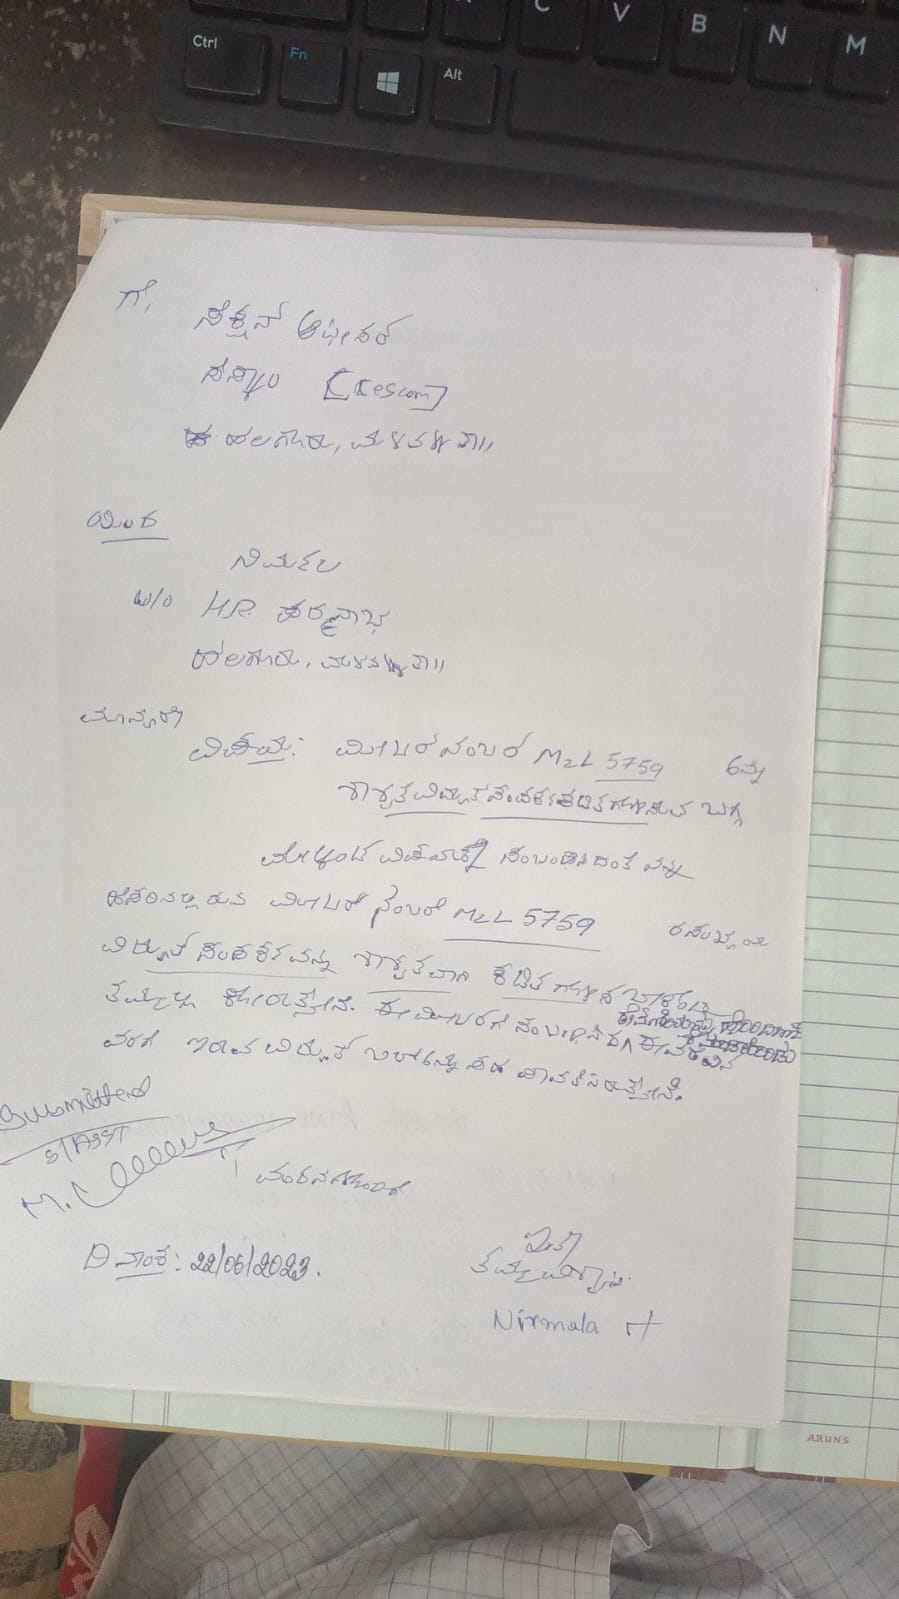 Ctrl Fn Alt C V B N M
ಗೆ,
ಸೆಕ್ಷನ್ ಆಫೀಸರ್
[Kescom]
ಹಲಗೂರು, ಮಳವಳ್ಳಿ ತಾ||
ಯಿಂದ
ನಿರ್ಮಲ
W/o HR. ಪದ್ಮನಾಭ
ಹಲಗೂರು, ಮಳವಳ್ಳಿ ತಾ||
ಮಾನ್ಯರೇ
ವಿಷಯ: ಮೀಟರ್ ನಂಬರ್ M2L 5759
ಶಾಶ್ವತ ವಿದ್ಯುತ್ ಸಂಪರ್ಕ ಕಡಿತಗೊಳಿಸುವ ಬಗ್ಗೆ
ಮೇಲ್ಕಂಡ ವಿಷಯಕ್ಕೆ ಸಂಬಂಧಿಸಿದಂತೆ ನನ್ನ
ಹೆಸರಿನಲ್ಲಿರುವ ಮೀಟರ್ ನಂಬರ್ M2L 5759
ವಿದ್ಯುತ್ ಸಂಪರ್ಕವನ್ನು ಶಾಶ್ವತವಾಗಿ
ತಮ್ಮಲ್ಲಿ ಕೋರುತ್ತೇನೆ. ಈ ಮೀಟರಿಗೆ
ವರೆಗೆ ಇರುವ ವಿದ್ಯುತ್ ಬಿಲ್ಲನ್ನು ಸಹ ಪಾವತಿಸಿರುತ್ತೇನೆ.
Submitted
S/ASST
ವಂದನೆಗಳೊಂದಿಗೆ
ದಿನಾಂಕ: 22/06/2023.
ಇಂತಿ
ತಮ್ಮ ವಿಶ್ವಾಸಿ
Nirmala H
ARUNS